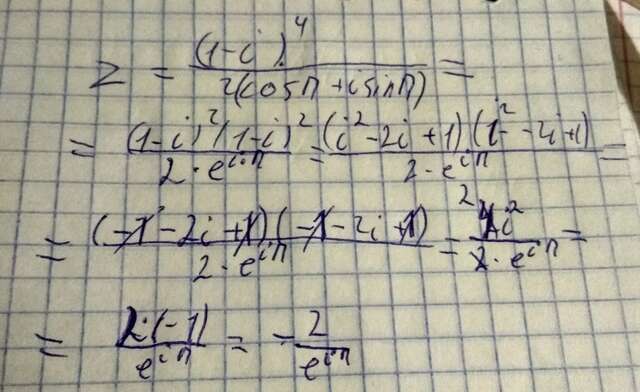 z = (1-i)^4 / 2(cosπ + i sinπ) =
= (1-i)^2 (1-i)^2 / 2·e^{iπ} = (i^2 - 2i + 1)(i^2 - 2i + 1) / 2·e^{iπ} =
= (-1 - 2i + 1)(-1 - 2i + 1) / 2·e^{iπ} = 4i^2 / 2·e^{iπ} =
= 2·(-1) / e^{iπ} = - 2 / e^{iπ}